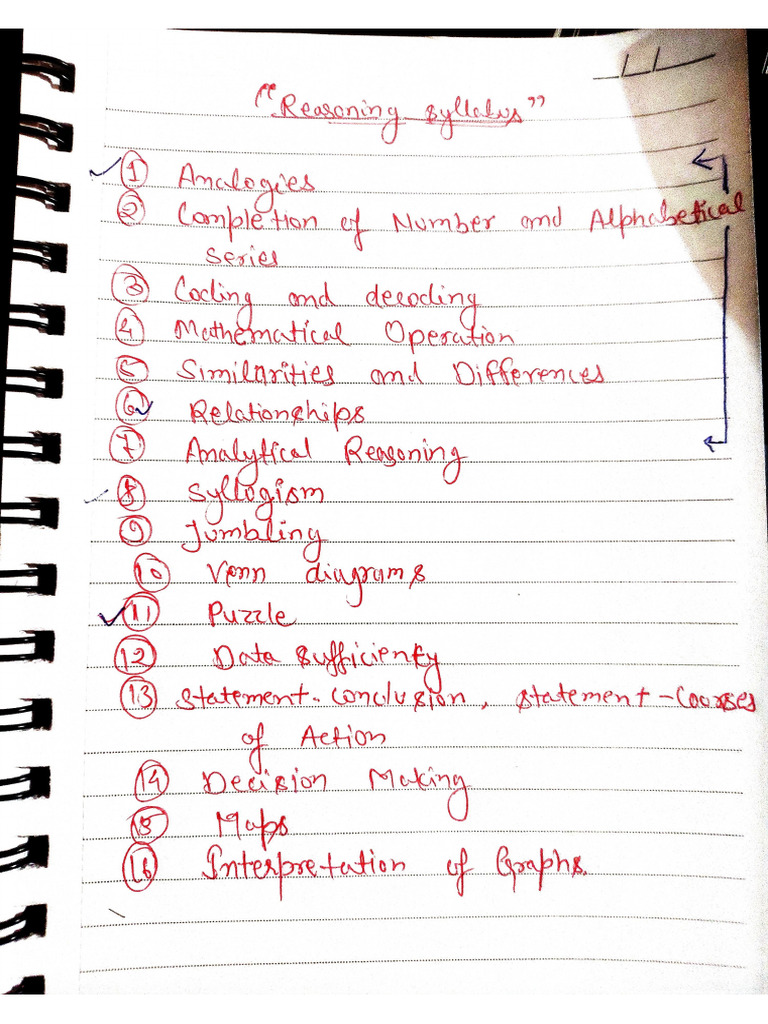 "Reasoning syllabus"
① Analogies
② Completion of Number and Alphabetical
series
③ Coding and decoding
④ Mathematical Operation
⑤ Similarities and Differences
⑥ Relationships
⑦ Analytical Reasoning
⑧ Syllogism
⑨ Jumbling
⑩ Venn diagrams
⑪ Puzzle
⑫ Data Sufficienty
⑬ Statement-Conclusion, Statement-Courses
of Action
⑭ Decision Making
⑮ Maps
⑯ Interpretation of Graphs.